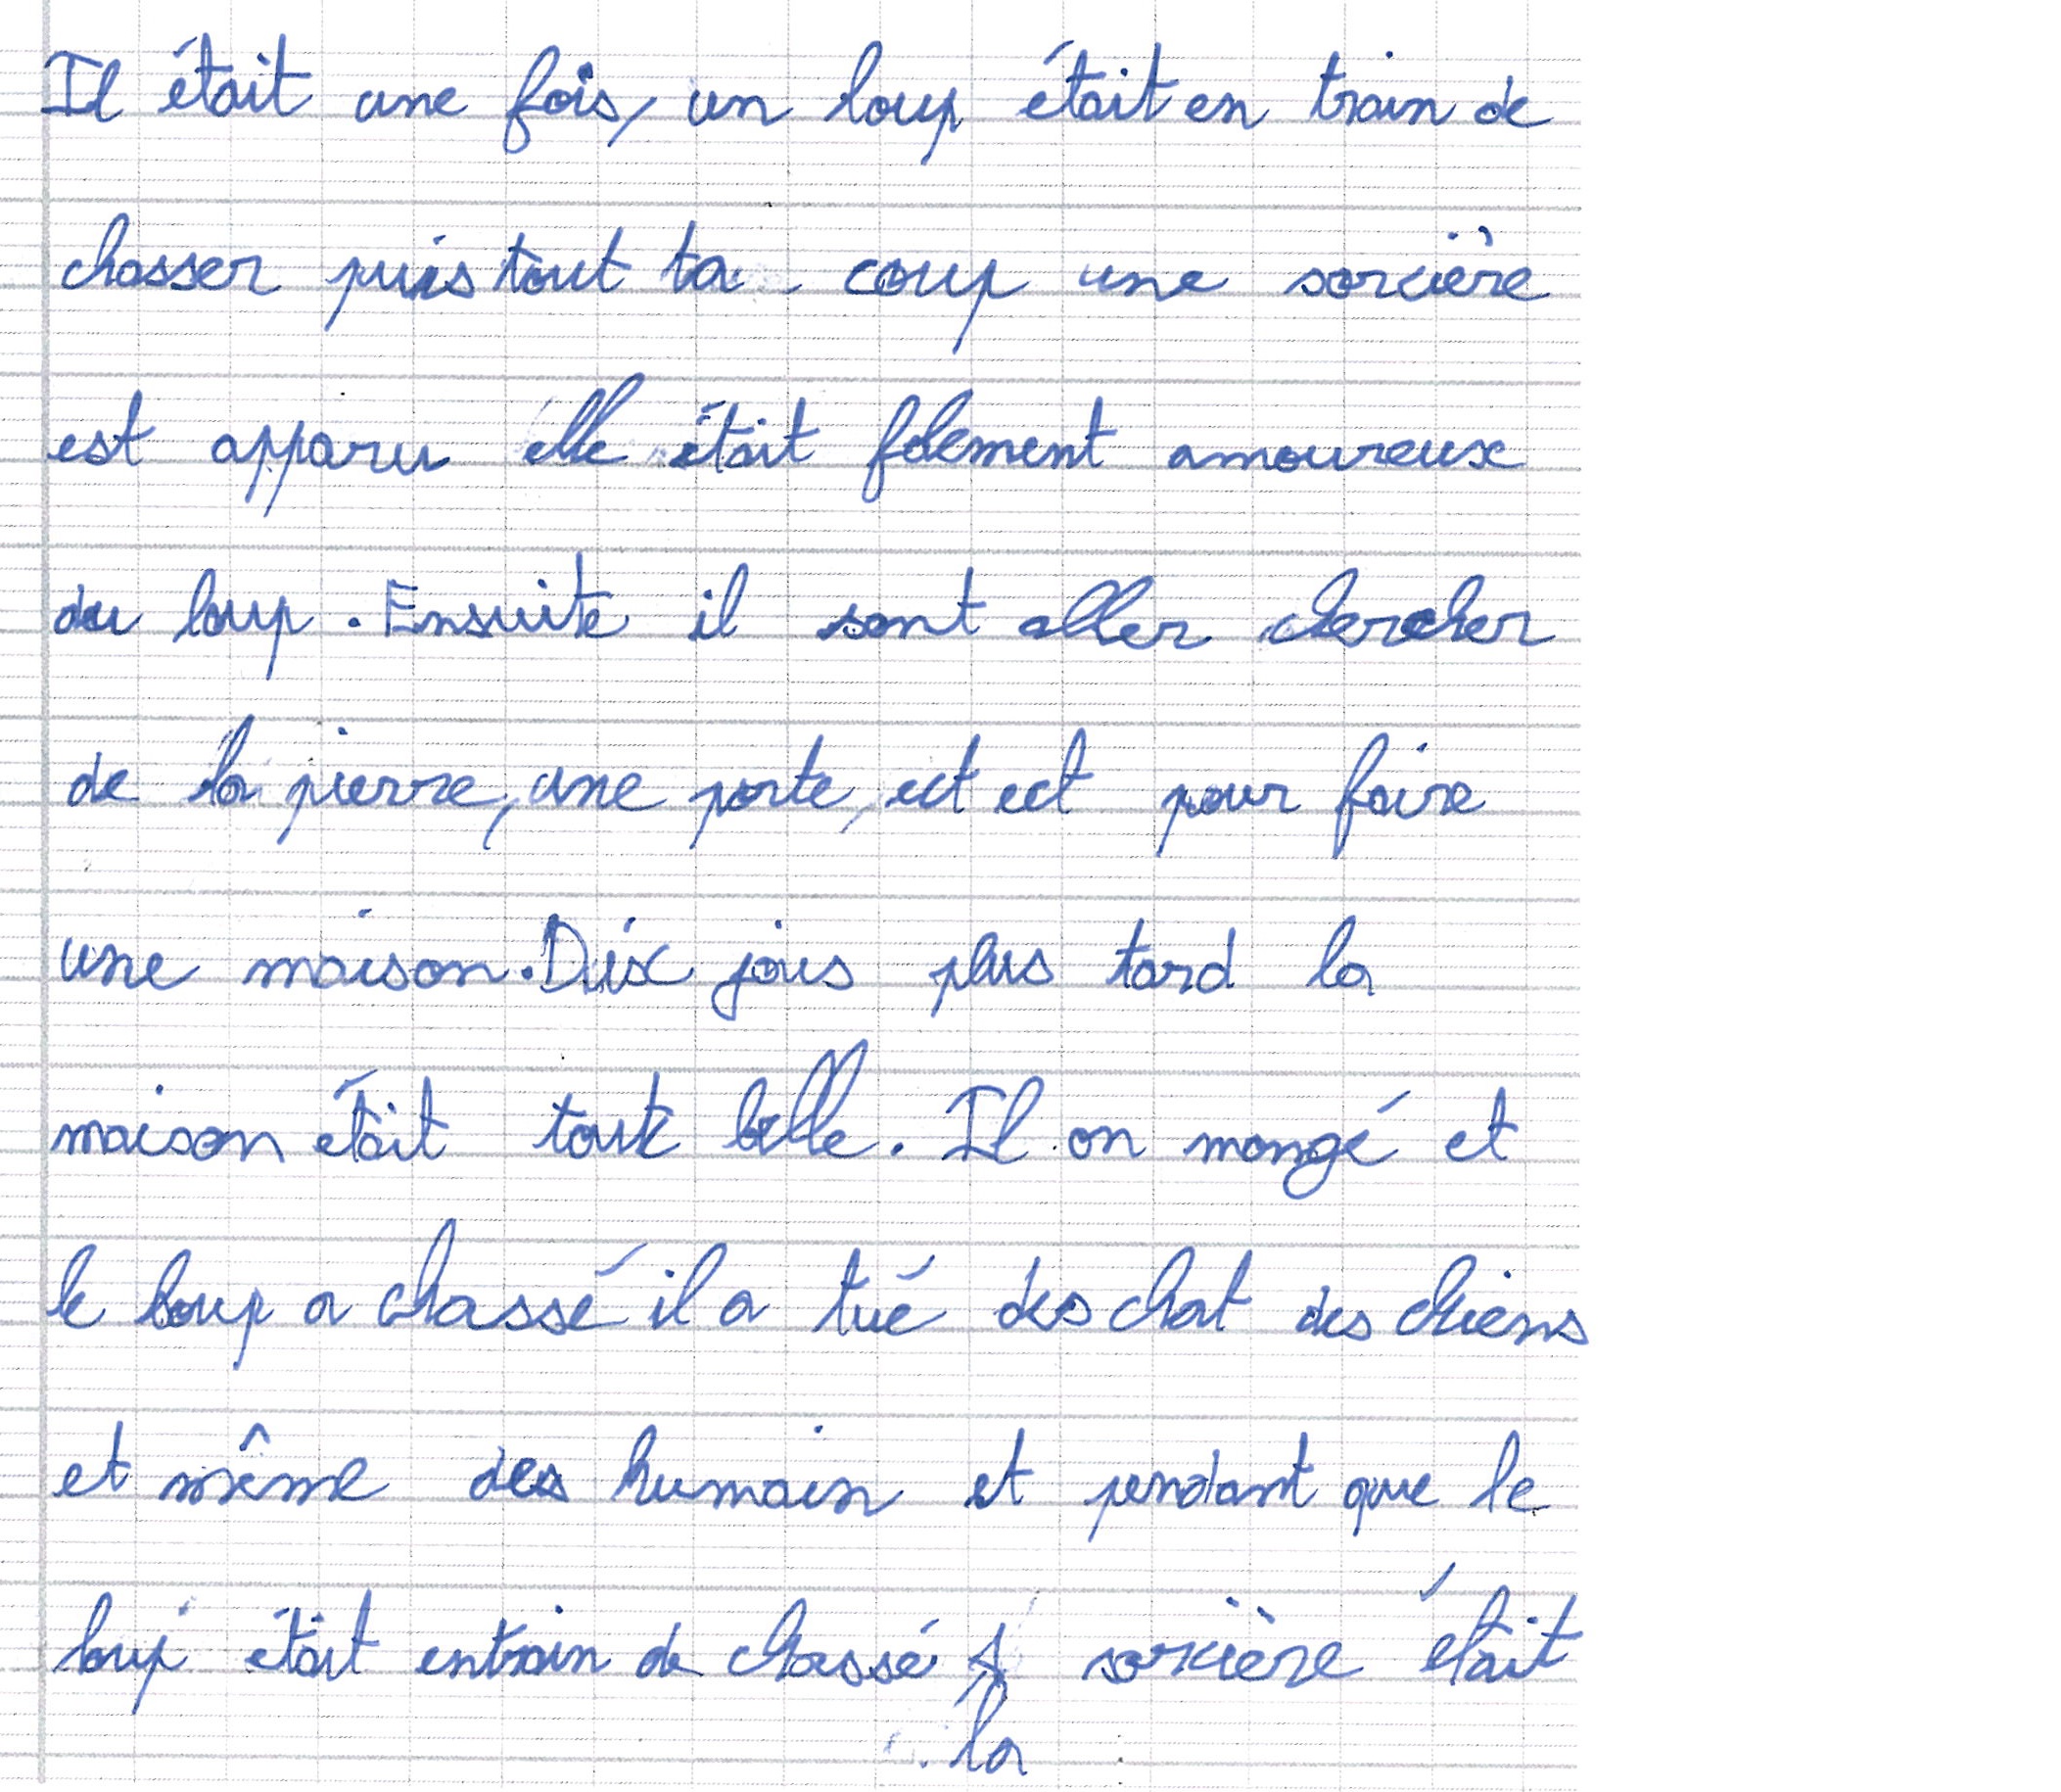 Il était une fois, un loup était en train de
chasser puis tout ta coup une sorcière
est apparu elle était folement amoureux
du loup. Ensuite il sont aller chercher
de la pierre, une porte, ect ect pour faire
une maison. Dix jous plus tard la
maison était toute belle. Il on mangé et
le loup a chassé il a tué des chat des chiens
et même des humain et pendant que le
loup était entrain de chassé sorcière était
la